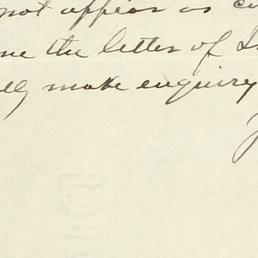 not appear as
me the letter of
make enquiry